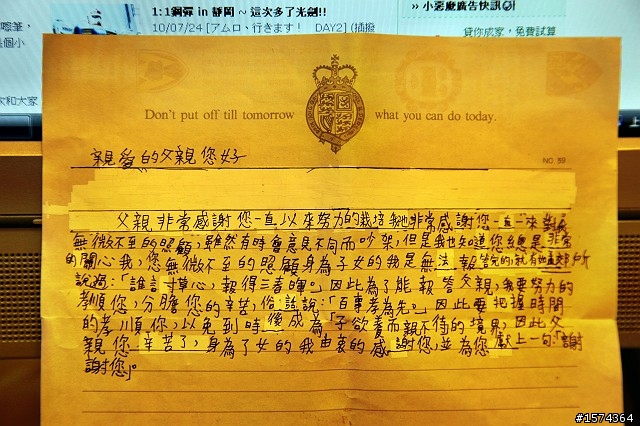 1:1鋼彈 in 靜岡 ~ 這次多了光劍!!
» 小惡魔廣告快訊
10/07/24 [アムロ、行きます！ DAY2] (插撥
貸你成家，免費試算
Don't put off till tomorrow what you can do today.
親愛的父親您好
NO. 59
父親非常感謝您一直以來努力的栽培我也非常感謝您一直以來對我
無微不至的照顧，雖然有時會意見不同而吵架，但是我也知道您總是非常
的關心我，您無微不至的照顧身為子女的我是無法報答完的，就有
說過：「誰言寸草心，報得三春暉」。因此為了能報答父親，我要努力的
孝順您，分擔您的辛苦，俗話說：「百事孝為先」。因此要把握時間
的孝順您，以免到時後成為「子欲養而親不待的境界，因此父
親您辛苦了，身為子女的我由衷的感謝您，並為您獻上一句：「謝謝
謝您」。
#1574364